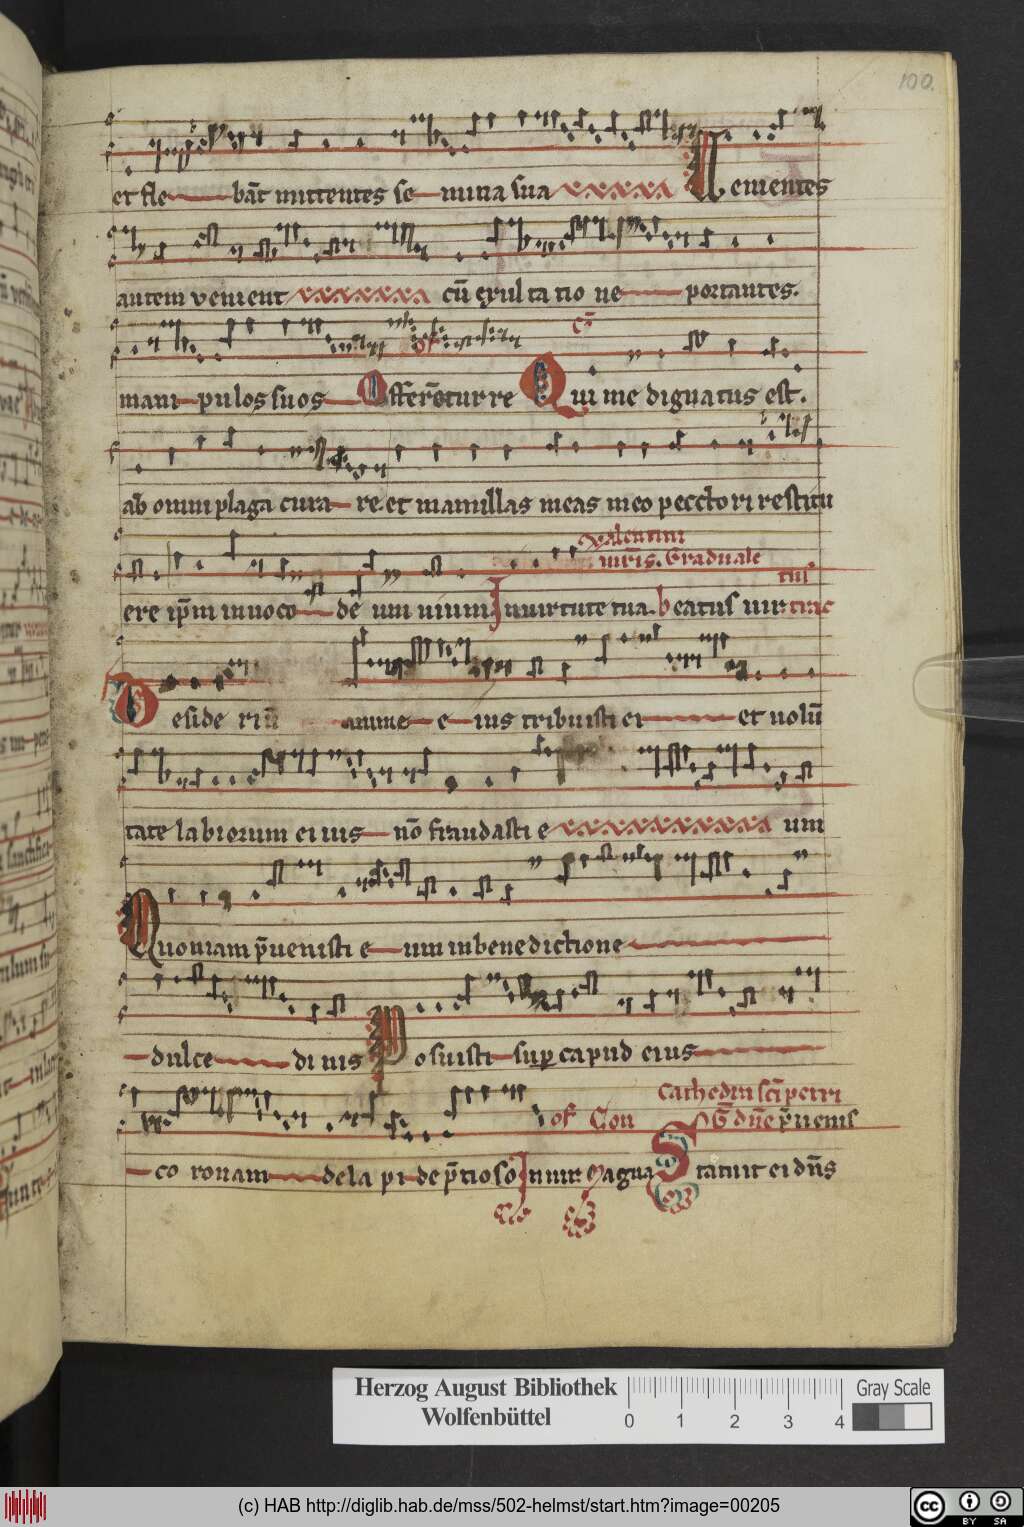 100.
et fle bāt mittentes se mina sua Uenientes
autem venient cū exul ta tio ne portantes.
of Cō
mani pulos suos Offerētur re Qui me dignatus est.
ab omni plaga cura re et mamillas meas meo pecctori restitu
Valentini
mr̄is. Graduale
ere ip̄m inuoco deū um uiuum In uirtute tua. beatus uir
Deside riū anime e ius tribuisti ei et uolū
tate labiorum ei ius nō fraudasti e um
Quoniam p̄uenisti e um in benedictione
dulce di nis Posuisti sup caput eius
Cathedra sc̄i petri
of Con G̅ dn̄e p̄uenis
co ronam de la pi de p̄tioso In uir. Magna Statuit ei dn̄s
Herzog August Bibliothek
Wolfenbüttel
0 1 2 3 4
Gray Scale
(c) HAB http://diglib.hab.de/mss/502-helmst/start.htm?image=00205
cc BY SA